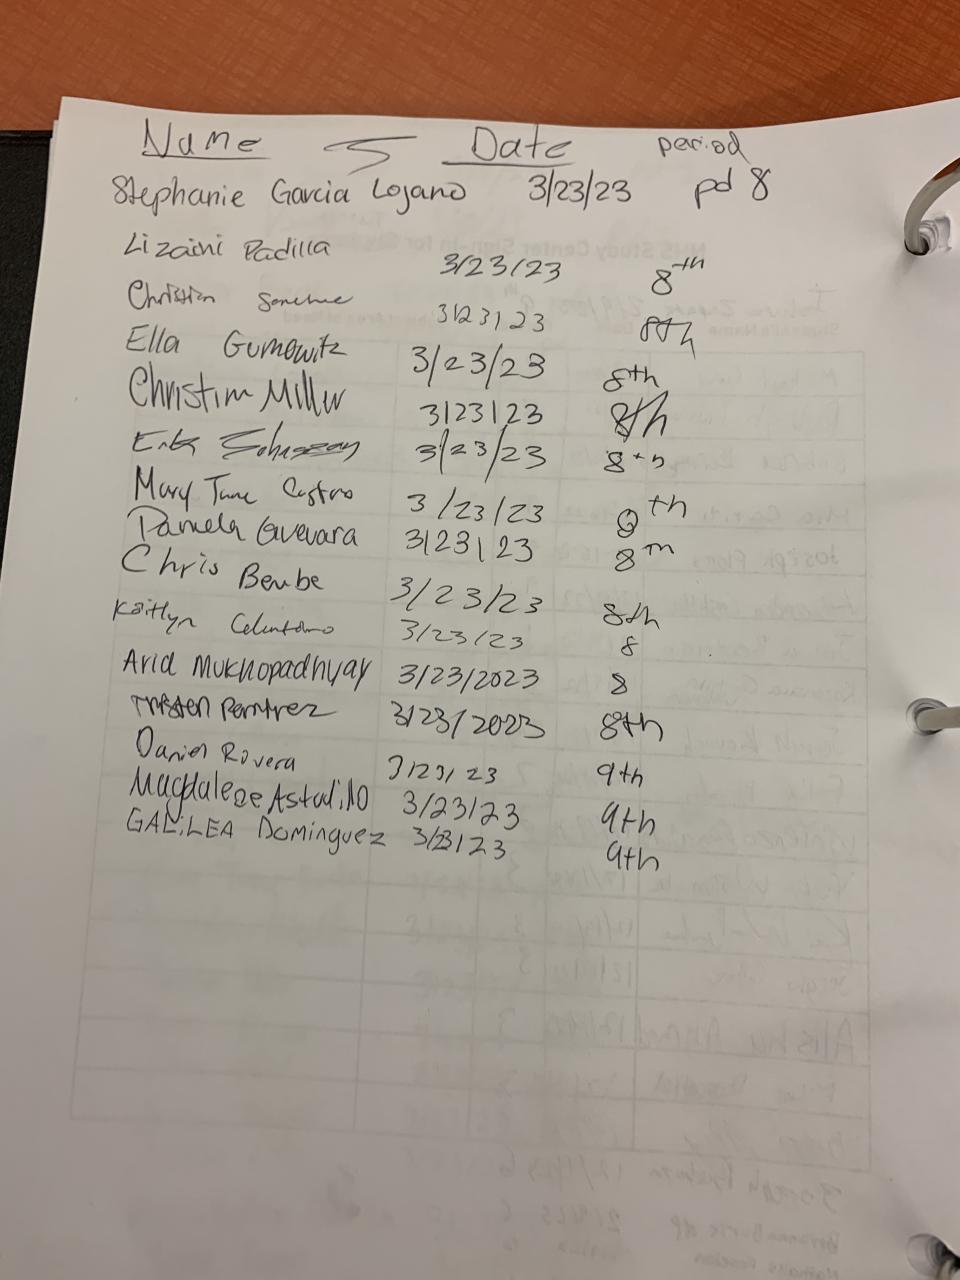 Name Date period
Stephanie Garcia Lozano 3/23/23 pd 8
Lizaini Padilla 3/23/23 8th
Christian 3/23/23 8th
Ella Gumowitz 3/23/23 8th
Christian Miller 3/23/23 8th
3/23/23 8th
Mary Jane Castro 3/23/23 8th
Pamela Guevara 3/23/23 8th
Chris Berube 3/23/23 8th
Kaitlyn 3/23/23 8
Arid Mukhopadhyay 3/23/2023 8
Tristen Ramirez 3/23/2023 8th
Daniel Rovera 3/23/23 9th
Magdalene Astudillo 3/23/23 9th
GALILEA Dominguez 3/23/23 9th